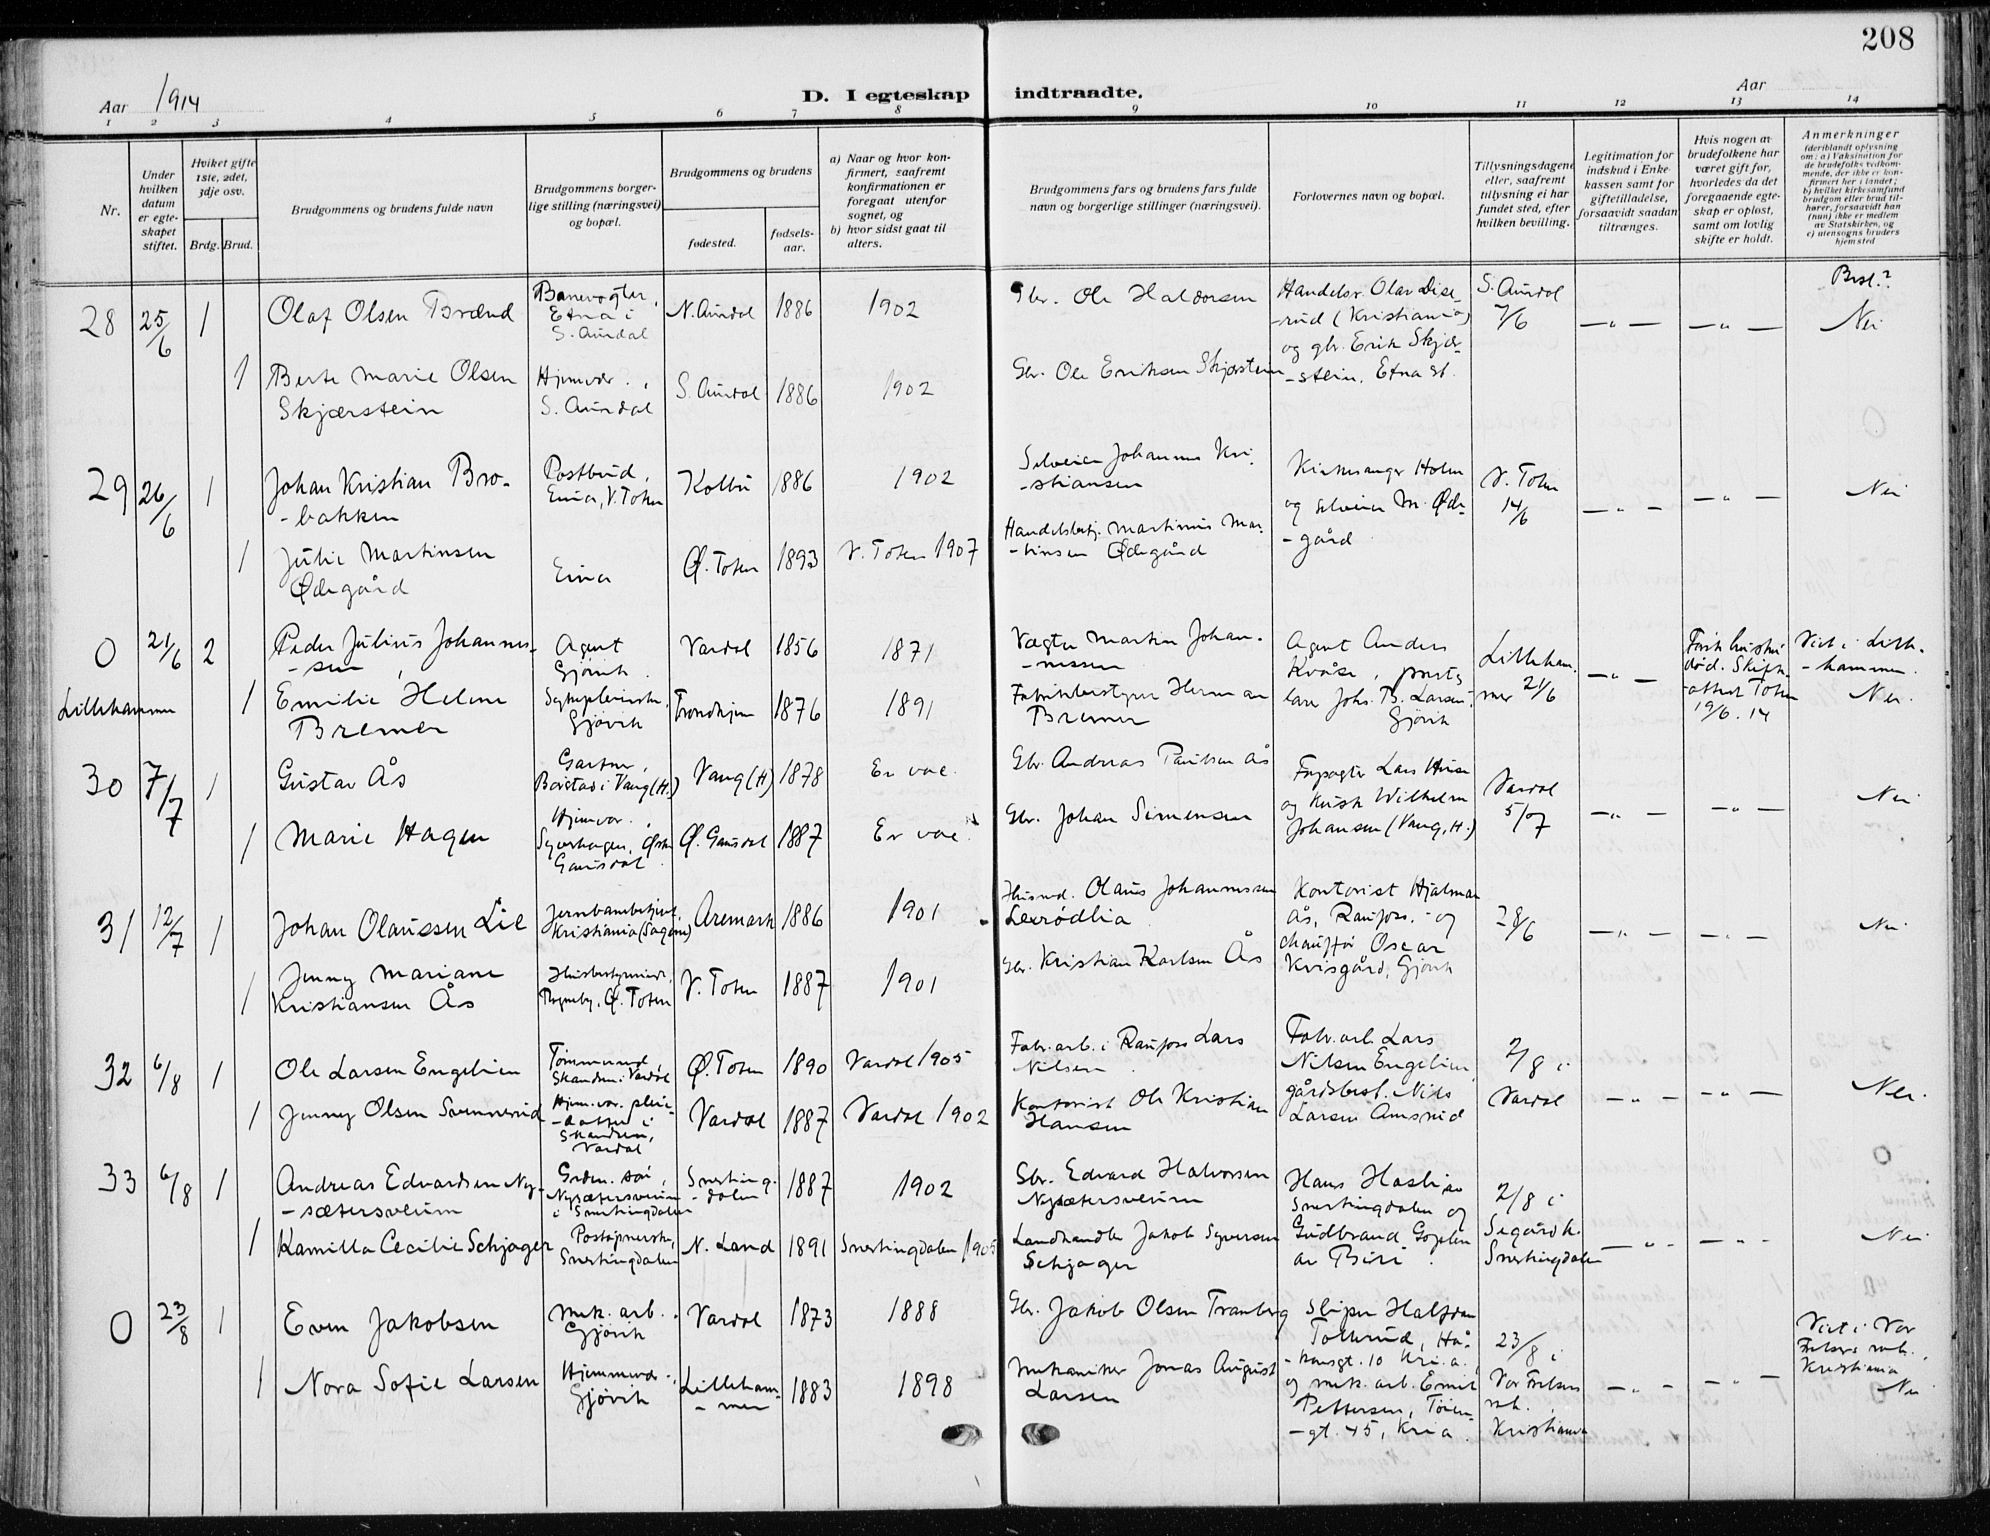 208
Aar 1914
D. I egteskap indtraadte.
Aar
1 2 3 4 5 6 7 8 9 10 11 12 13 14
Nr.
Under hvilken datum er egteskapet stiftet.
Hvilket gifte 1ste, 2det, 3dje osv.
Brdg. Brud.
Brudgommens og brudens fulde navn
Brudgommens borgerlige stilling (næringsvei) og bopæl.
Brudgommens og brudens
fødested.
fødselsaar.
a) Naar og hvor konfirmert, saafremt konfirmationen er foregaat utenfor sognet, og
b) hvor sidst gaat til alters.
Brudgommens fars og brudens fars fulde navn og borgerlige stillinger (næringsvei).
Forlovernes navn og bopæl.
Tillysningsdagene eller, saafremt tillysning ei har fundet sted, efter hvilken bevilling.
Legitimation for indskud i Enkekassen samt for giftetilladelse, forsaavidt saadan tiltrænges.
Hvis nogen av brudefolkene har været gift før, hvorledes da det foregaaende egteskap er opløst, samt om lovlig skifte er holdt.
Anmerkninger (deriblandt oplysning om: a) Vaksination for de brudefolks vedkommende, der ikke er konfirmert her i landet; b) hvilket kirkesamfund brudgom eller brud tilhører, forsaavidt han (hun) ikke er medlem av Statskirken, og c) utensogns bruders hjemsted
Besl.?
28 25/6 1 Olaf Olsen Brænd
Banevogter, Etna i S. Aurdal
N. Aurdal 1886 1902
Gbr. Ole Haldorsen
Handelsr. Olav Diserud (Kristiania) og gbr. Erik Skjærstein, Etna st.
S. Aurdal 7/6
— " — — " — Nei
1 Berte Marie Olsen Skjærstein
Hjemvær., S. Aurdal
S. Aurdal 1886 1902
Gbr. Ole Eriksen Skjærstein
29 26/6 1 Johan Kristian Brobakken
Postbud, Eina, V. Toten
Kolbu 1886 1902
Selveier Johannes Kristiansen
Kirkesanger Holm og selveier M. Ødegård
V. Toten 14/6
— " — — " — Nei
1 Julie Martinsen Ødegård
Eina
Ø. Toten 1893 V. Toten 1907
Handelsbetj. Martinus Martinsen Ødegård
0 21/6 2 Peder Julius Johannessen
Agent Gjøvik
Vardal 1856 1871
Vægter Martin Johannessen
Agent Anders Kvåle, Joh. B. Larsen, Gjøvik
Lillehammer 21/6
— " —
død. Toten 19/6. 14
Viet i Lillehammer. Nei.
Lillehammer
1 Emilie Helene Bremer
Gjøvik
Trondhjem 1876 1891
Fabrikbestyrer Herman Bremer
30 7/7 1 Gustav Ås
Gartner, i Vang (H.)
Vang (H) 1878 Er vac.
Gbr. Andreas Paulsen Ås
Forpagter Lars Huse og kusk Wilhelm Johansen (Vang, H.)
Vardal 5/7
— " — — " — Nei
1 Marie Hagen
Hjemvær., Østre Gausdal
Ø. Gausdal 1887 Er vac.
Gbr. Johan Simensen
31 12/7 1 Johan Olaussen Lie
Jernbanebetjent, Kristiania (Sagene)
Aremark 1886 1901
Husmd. Olaus Johannessen Lexrødlia
Kontorist Hjalmar Ås, Raufoss, og chauffør Oscar Kvisgård, Gjøvik
28/6
— " — — " — Nei
1 Jenny Mariane Kristiansen Ås
Husbestyrerinde, Ø. Toten
V. Toten 1887 1901
Gbr. Kristian Karlsen Ås
32 6/8 1 Ole Larsen Engelien
Tømmermd., Skanden i Vardal
Ø. Toten 1890 Vardal 1905
Fabr. arb. i Raufoss Lars Nilsen
Fabr. arb. Lars Nilsen Engelien, gårdsbest. Nils Larsen Amsrud
2/8 i Vardal
— " — — " — Nei.
1 Jenny Olsen Svennerud
Hjem.vær. pleiedatter i Skanden, Vardal
Vardal 1887 Vardal 1902
Kontorist Ole Kristian Hansen
33 6/8 1 Andreas Edvardsen Nysætersveum
Grden. søn, Nysætersveum i Snertingdalen
Snertingdalen 1887 1902
Gbr. Edvard Halvorsen Nysætersveum
Hans Haslien Snertingdalen og Gudbrand Goplen av Biri.
2/8 i Segård k. Snertingdalen
— " — — " — Nei
1 Kamilla Cecilie Schjager
Poståpnerske, Snertingdalen
N. Land 1891 Snertingdalen 1905
Landhandler Jakob Syversen Schjager
0 23/8 1 Even Jakobsen
mek. arb., Gjøvik
Vardal 1873 1888
Gbr. Jakob Olsen Tranberg
Sliper Halfdan Tollerud, Håkonsgt. 10 Kr.a. og mek. arb. Emil Pettersen, Tøiengt. 45, Kr.a.
23/8 i Vor Frelsers mk., Kristiania
— " — — " —
Viet i Vor Frelsers mk., Kristiania Nei
1 Nora Sofie Larsen
Hjemmevær., Gjøvik
Lillehammer 1883 1898
Mekaniker Jonas August Larsen